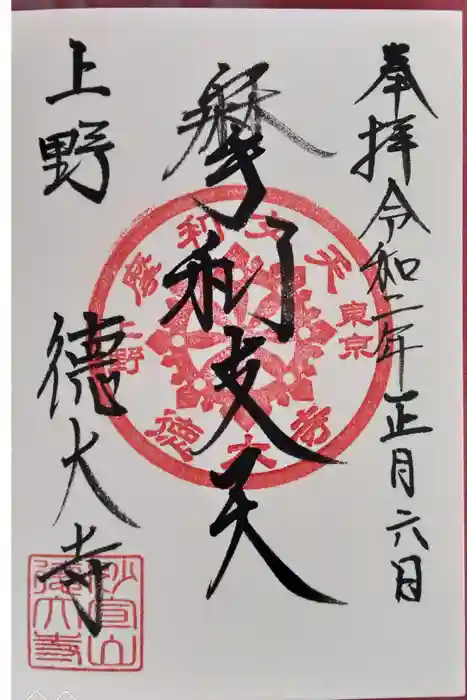 奉拝 令和二年正月六日
摩利支天
上野 德大寺
摩利支天
東京
上野
德大寺
妙宣山
德大寺